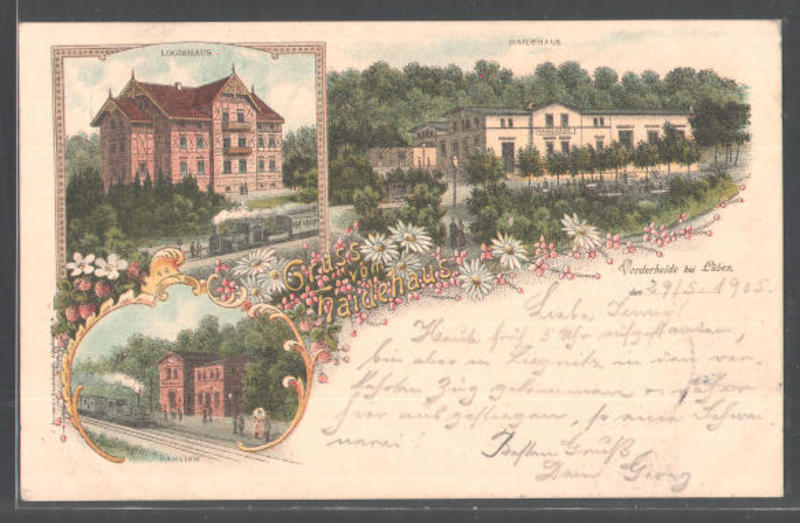 LOGIRHAUS
HAIDEHAUS
Gruss
vom
Haidehaus.
Vorderheide bei Lüben,
den 29/5. 1905.
Liebe Jenny!
Heute früh 5 Uhr aufgestanden,
bin aber in Liegnitz in den ver
kehrten Zug gekommen
hier ausgestiegen, so eine Schwei
nerei! Besten Gruß
Dein Georg